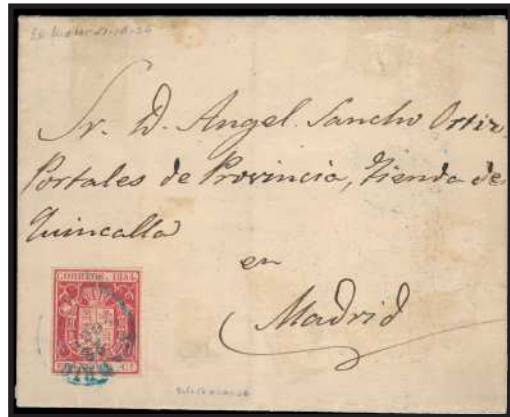 Sr. D. Angel Sancho Ortiz
Portales de Provincia, Tienda de
Quincalla
en
Madrid
CORREOS. 1854